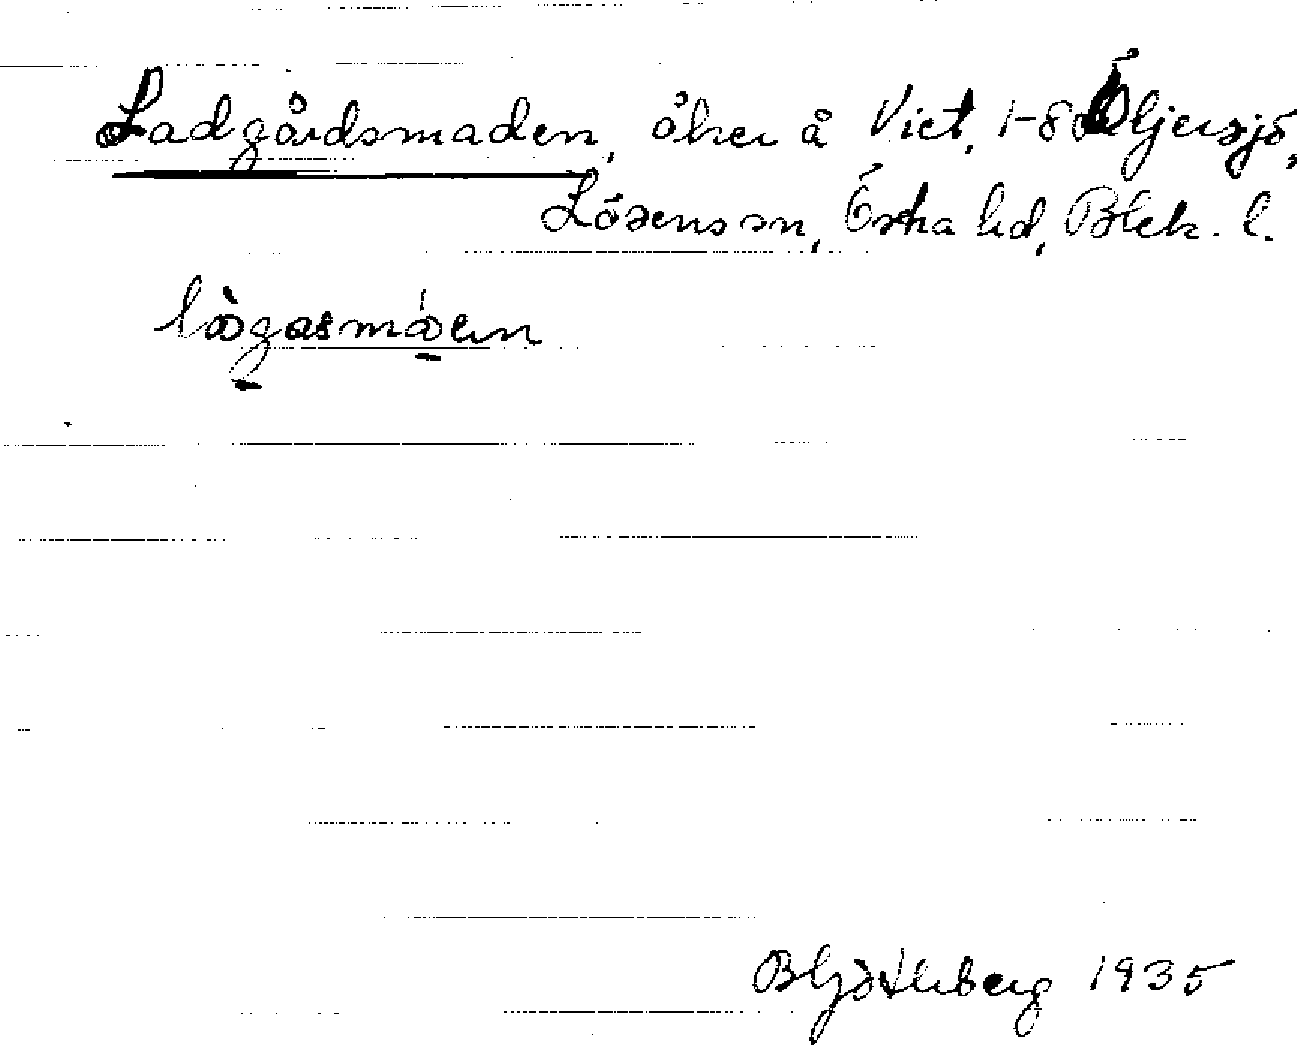 Ladgårdsmaden, åker å Vict, 1-8 Öljersjö,
Lösens sn, Östra hd, Blek. l.
lògasmáen
1935